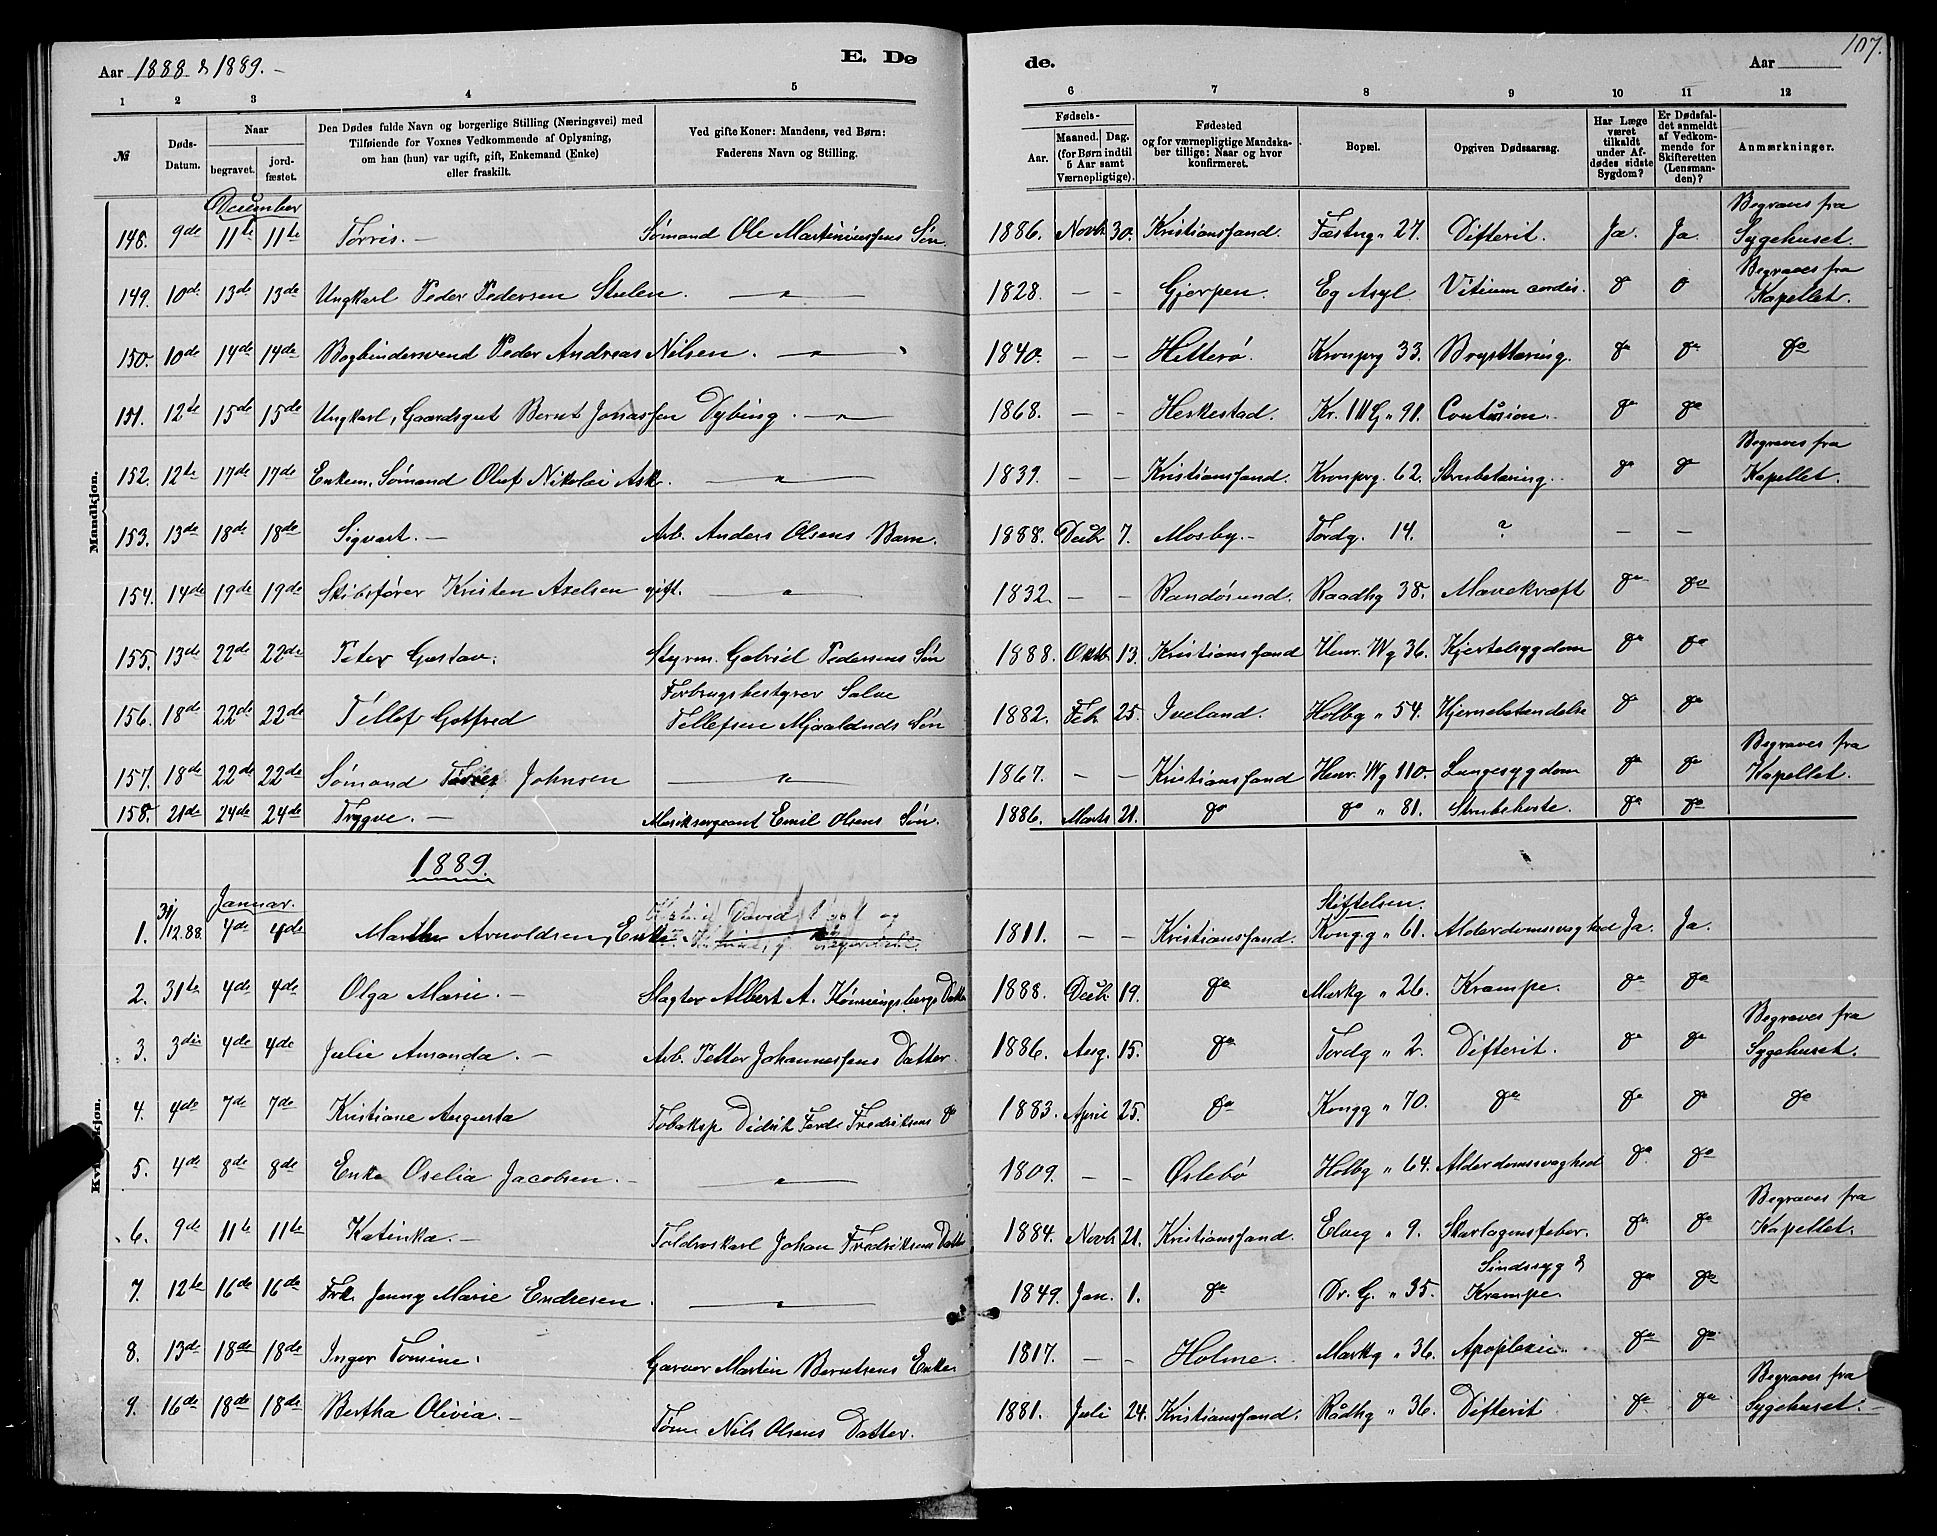 107.
Aar 1888 & 1889. —
E. Dø
de.
Aar
1 2 3 4 5 6 7 8 9 10 11 12
№
Døds-
Datum.
Naar
begravet.
jord-
fæstet.
Den Dødes fulde Navn og borgerlige Stilling (Næringsvei) med
Tilføiende for Voxnes Vedkommende af Oplysning,
om han (hun) var ugift, gift, Enkemand (Enke)
eller fraskilt.
Ved gifte Koner: Mandens, ved Børn:
Faderens Navn og Stilling.
Fødsels-
Aar.
Maaned. Dag.
(for Børn indtil
5 Aar samt
Værnepligtige).
Fødested
og for værnepligtige Mandska-
ber tillige: Naar og hvor
konfirmeret.
Bopæl.
Opgiven Dødsaarsag.
Har Læge
været
tilkaldt
under Af-
dødes sidste
Sygdom?
Er Dødsfal-
det anmeldt
af Vedkom-
mende for
Skifteretten
(Lensman-
den)?
Anmærkninger.
Mandkjøn.
December
148. 9de 11te 11te Torris. — Sømand Ole Martiniussens Søn 1886. Novb 30. Kristianssand. Fæstng " 27. Difterit. Ja. Ja. Begraves fra Sygehuset.
149. 10de 13de 13de Ungkarl Peder Pedersen Stulen. — " — 1828. — — Gjerpen. Eg Asyl Vitium cordis. do do Begraves fra Kapellet.
150. 10de 14de 14de Bogbindersvend Peder Andreas Nilsen. — " — 1840. — — Hitterø. Kronprg 33. Brysttæring. do do do
151. 12te 15de 15de Ungkarl, Gaardsgut Bernt Jonassen Dybing. — " — 1868. — — Heskestad. Kr. IV G " 91. Contusion. do do
152. 12te 17de 17de Enkem. Sømand Oluf Nikolai Ask. — " — 1839. — — Kristianssand. Kronprg. 62. Strubetæring. do do Begraves fra Kapellet.
153. 13de 18de 18de Sigvart. — Arb. Anders Olsens Barn. 1888. Decbr 7. Mosby. — Tordg. 14. ? — —
154. 14de 19de 19de Skibsfører Kristen Axelsen gift. — " — 1832. — — Randøsund. Raadhg 38. Mavekræft do do
155. 13de 22de 22de Peter Gustav. Styrm. Gabriel Pedersens Søn 1888. Oktb. 13. Kristianssand Henr. Wg 36. Kjertelsygdom do do
156. 18de 22de 22de Tellef Gotfred Forbrugsbestyrer Salve Tellefsen Mjaalands Søn 1882. Feb. 25. Iveland. Holbg " 54. Hjernebetændelse do do
157. 18de 22de 22de Sømand Torres Johnsen — " — 1867. — — Kristianssand Henr. Wg 110. Lungesygdom do do Begraves fra Kapellet.
158. 21de 24de 24de Trygve. — Musiksergeant Emil Olsens Søn. 1886. Marts 21. do do " 81. Strubehoste. do do
1889.
Kvindekjøn.
Januar.
1. 31/12.88. 4de 4de Marthe Arnoldsen, Enke 1811. — — Kristianssand. Stiftelsen. Kongg " 61. Alderdomssvaghed Ja. Ja.
2. 31te 4de 4de Olga Marie. — Slagter Albert A. Kønningsbergs Datter 1888. Decb. 19. do Markg " 26. Krampe. do do
3. 3die 4de 4de Julie Amanda. — Arb. Petter Johannessens Datter. 1886. Aug. 15. do Tordg " 2. Difterit. do do Begraves fra Sygehuset.
4. 4de 7de 7de Kristiane Augusta Tobaksp Didrik Ferd. Fredriksens do 1883. April 25. do Kongg " 70. do do do do
5. 4de 8de 8de Enke Oselia Jacobsen. — " — 1809. — — Øslebø Holbg " 64. Alderdomssvaghed do do
6. 9de 11te 11te Katinka. — Toldroskarl Johan Fredriksens Datter 1884. Novb. 21. Kristianssand. Elveg " 9. Skarlagensfeber. do do Begraves fra Kapellet.
7. 12te 16de 16de Frk. Jenny Marie Endresen. — " — 1849. Jan. 1. do Dr. G. " 35. Sindssyg & Krampe. do do
8. 13de 18de 18de Inger Tomine. Garver Martin Berntsens Enke. 1817. — — Holme. Markg " 36. Apoplexi. do do
9. 16de 18de 18de Bertha Olivia. — Tøm. Nils Olsens Datter. 1881. Juli 24. Kristianssand. Rådhg " 36. Difterit do do Begraves fra Sygehuset. —